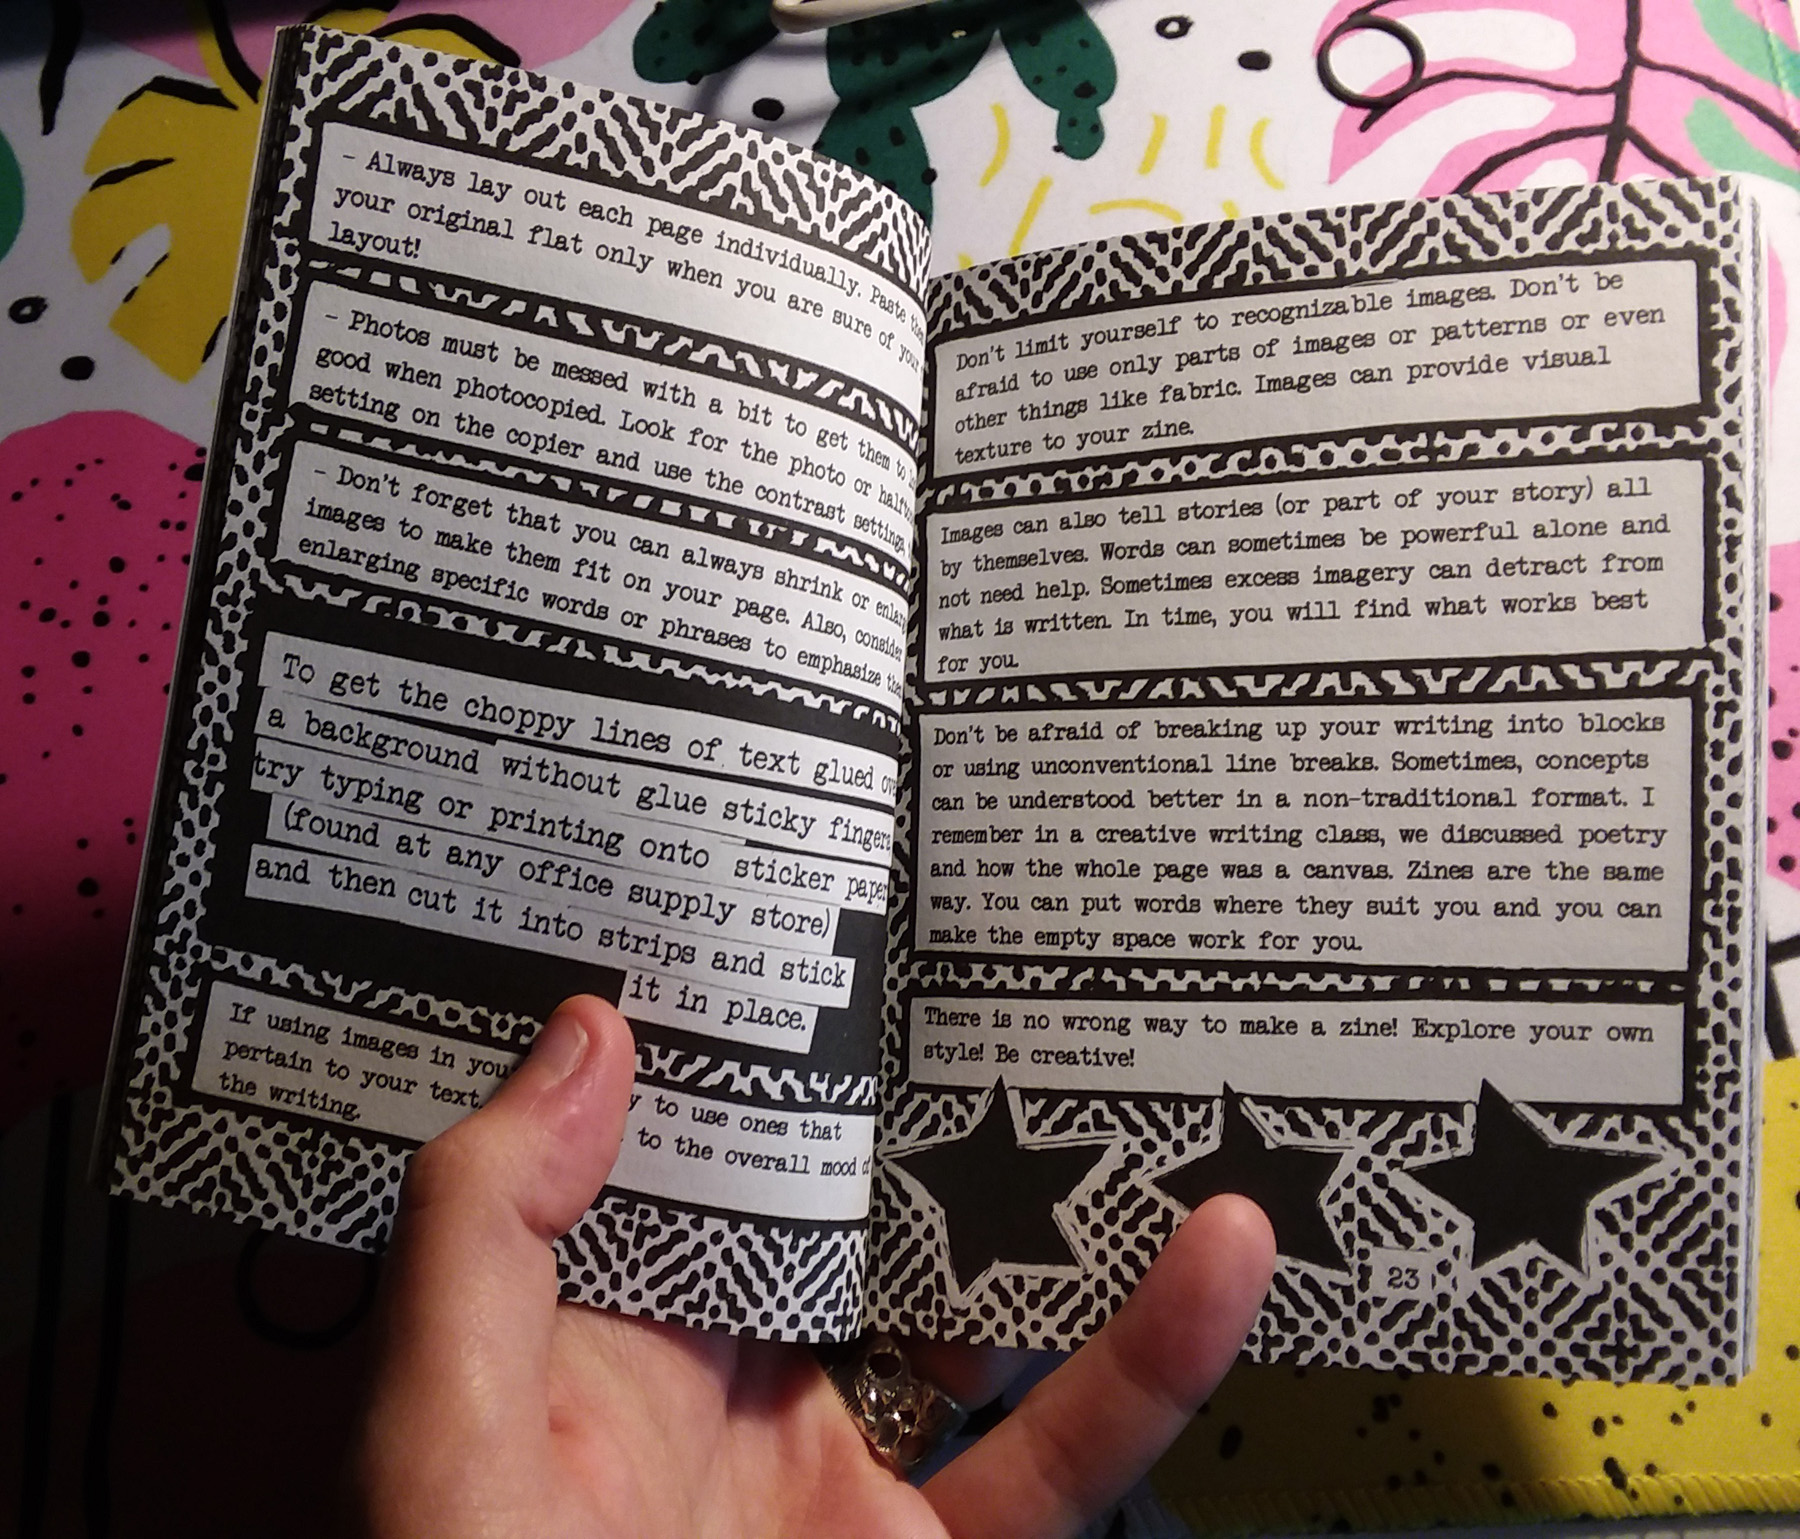 - Always lay out each page individually. Paste
your original flat only when you are sure of your
layout!
- Photos must be messed with a bit to get them to
good when photocopied. Look for the photo or
setting on the copier and use the contrast settings.
- Don't forget that you can always shrink or
images to make them fit on your page. Also, consider
enlarging specific words or phrases to emphasize
To get the choppy lines of text glued
a background without glue sticky fingers
try typing or printing onto sticker paper
(found at any office supply store)
and then cut it into strips and stick
it in place.
If using images in to use ones that
pertain to your text. to the overall mood
the writing.
Don't limit yourself to recognizable images. Don't be
afraid to use only parts of images or patterns or even
other things like fabric. Images can provide visual
texture to your zine.
Images can also tell stories (or part of your story) all
by themselves. Words can sometimes be powerful alone and
not need help. Sometimes excess imagery can detract from
what is written. In time, you will find what works best
for you.
Don't be afraid of breaking up your writing into blocks
or using unconventional line breaks. Sometimes, concepts
can be understood better in a non-traditional format. I
remember in a creative writing class, we discussed poetry
and how the whole page was a canvas. Zines are the same
way. You can put words where they suit you and you can
make the empty space work for you.
There is no wrong way to make a zine! Explore your own
style! Be creative!
23